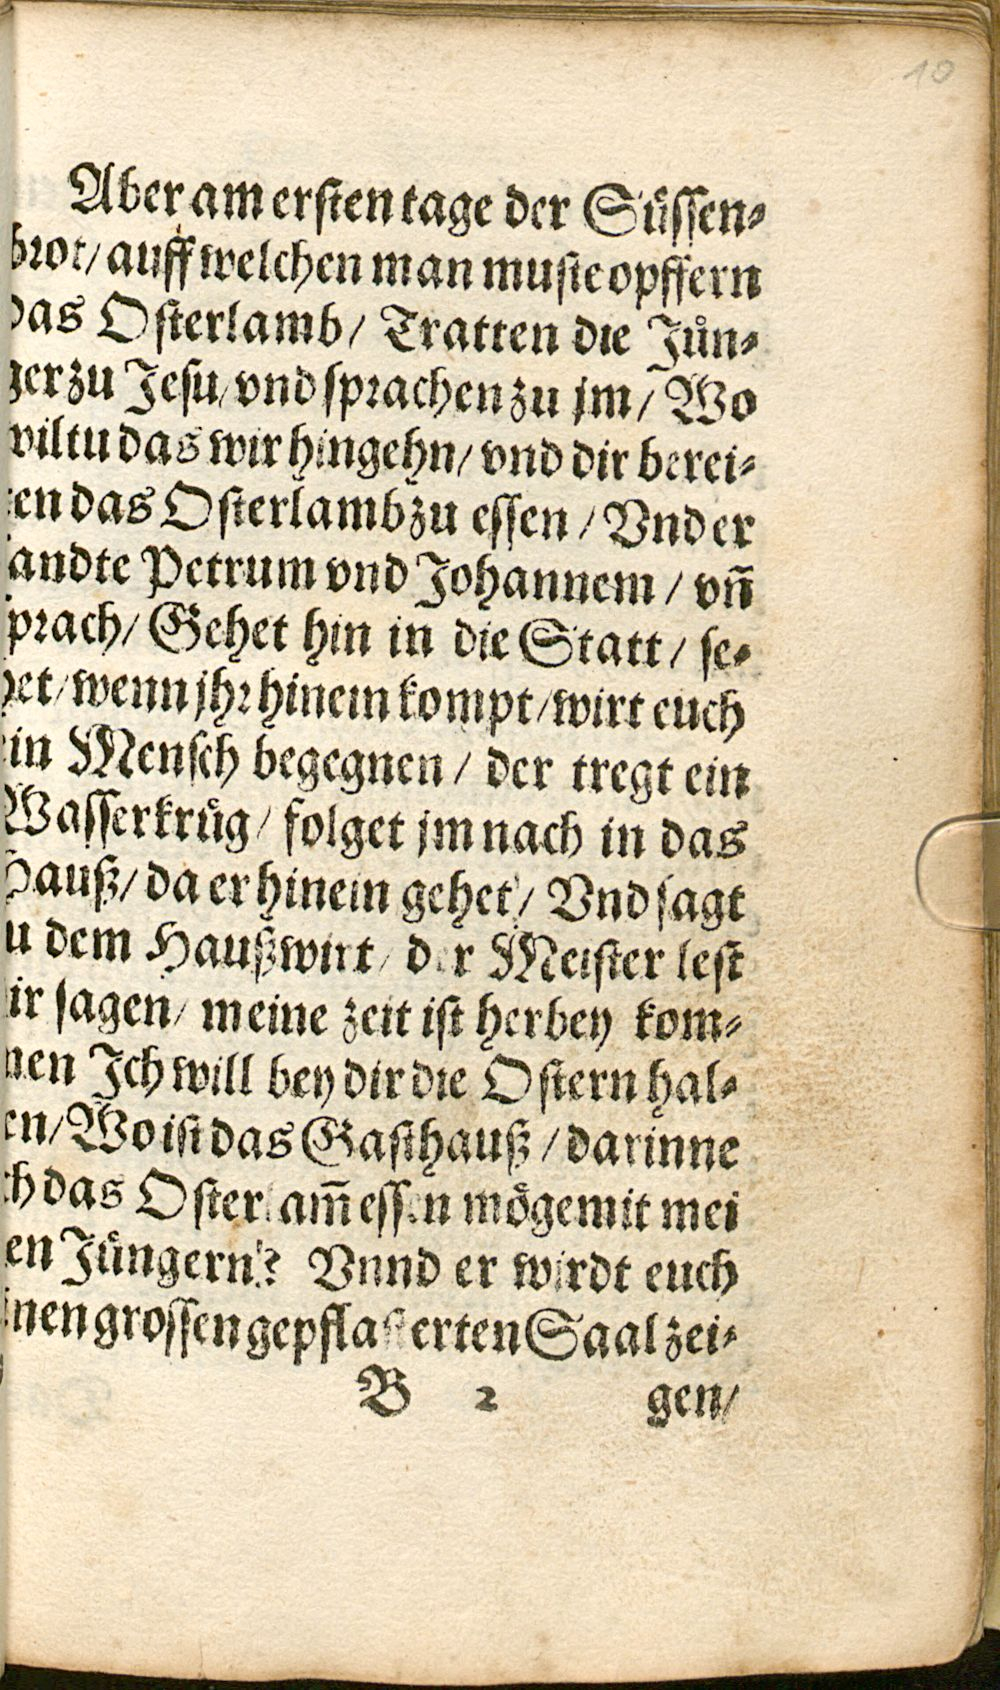 10
Aber am ersten tage der Süssen-
brot/ auff welchen man muste opffern
das Osterlamb/ Tratten die Jün-
ger zu Jesu/ vnd sprachen zu jm/ Wo
wiltu das wir hingehn/ vnd dir berei-
ten das Osterlamb zu essen/ Vnd er
sandte Petrum vnd Johannem/ vñ
sprach/ Gehet hin in die Statt/ se-
het/ wenn jhr hinein kompt/ wirt euch
ein Mensch begegnen/ der tregt ein
Wasserkrůg/ folget jm nach in das
Hauß/ da er hinein gehet/ Vnd sagt
zu dem Haußwirt/ der Meister lest
dir sagen/ meine zeit ist herbey kom-
men Ich will bey dir die Ostern hal-
ten/ Wo ist das Gasthauß/ darinne
ich das Osterlam̄ essen möge mit mei
nen Jüngern? Vnnd er wirdt euch
einen grossen gepflasterten Saal zei-
B 2 gen/